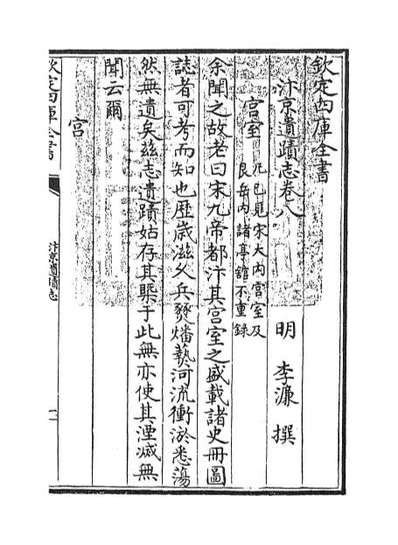 欽定四庫全書
汴京遺蹟志卷八
明 李濂 撰
宮室
凡已見宋大内宫室及
艮岳内諸亭館不重録
余聞之故老曰宋九帝都汴其宫室之盛載諸史冊圖
誌者可考而知也歴歲滋久兵燹燔爇河流衝淤悉蕩
然無遺矣兹志遺蹟姑存其槩于此無亦使其湮滅無
聞云爾
宫
欽定四庫全書
汴京遺蹟志